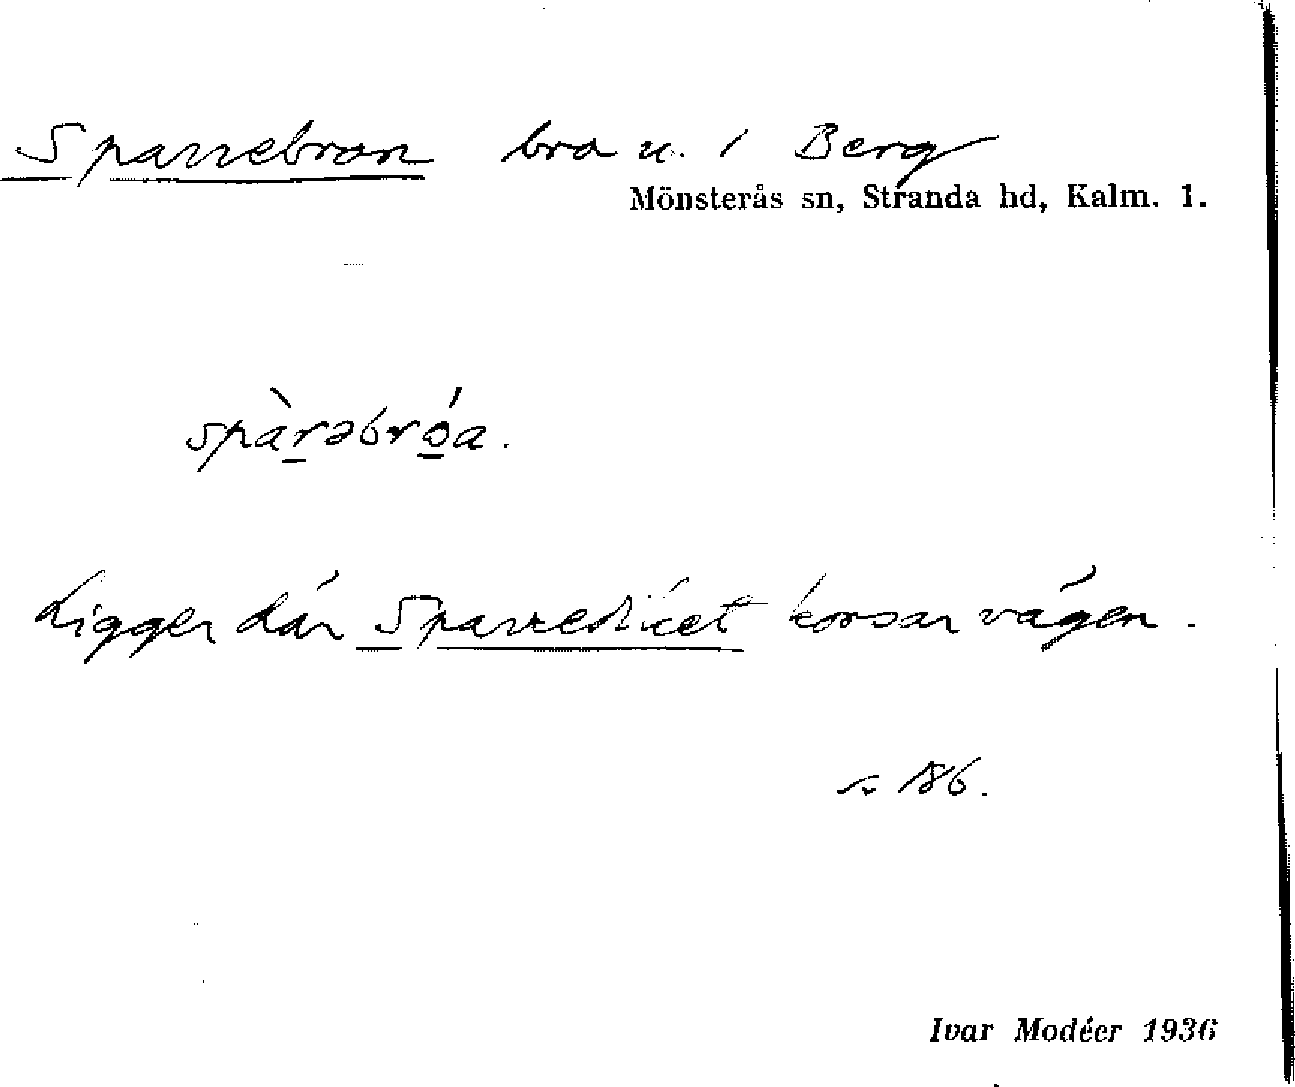 Sparrebron bro u. / Berg
Mönsterås sn, Stranda hd, Kalm. l.
spàrəbróa.
Ligger där Sparrediket korsar vägen.
s. 186.
Ivar Modéer 1936